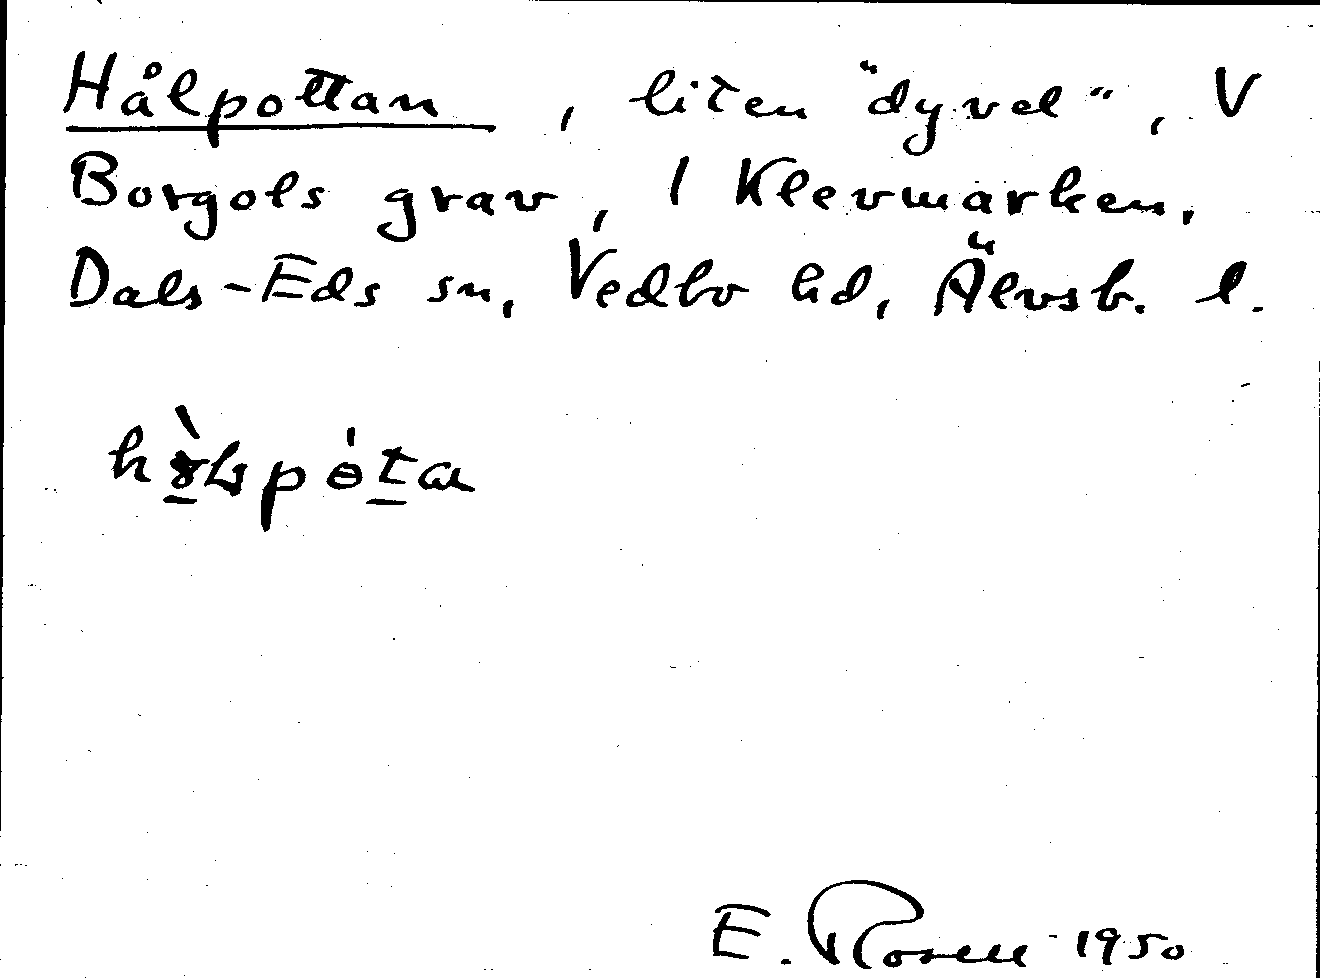 Hålpottan, liten "dyvel", V
Borgols grav, 1 Klevmarken,
Dals-Eds sn, Vedbo hd, Älvsb. l.
E. Rosell 1950